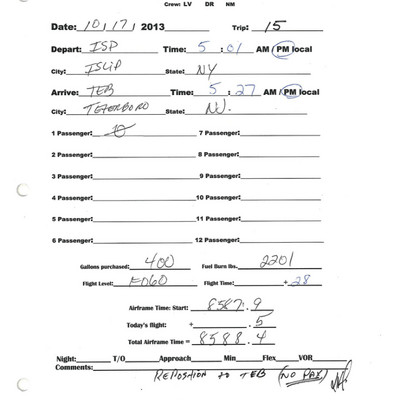 Crew: LV DR NM
Date: 10/17/2013 Trip: 15
Depart: ISP Time: 5 : 01 AM / PM local
City: ISLIP State: NY
Arrive: TEB Time: 5 : 27 AM / PM local
City: TETERBORO State: NJ.
1 Passenger: 0 7 Passenger:
2 Passenger: 8 Passenger:
3 Passenger: 9 Passenger:
4 Passenger: 10 Passenger:
5 Passenger: 11 Passenger:
6 Passenger: 12 Passenger:
Gallons purchased: 400 Fuel Burn lbs. 2201
Flight Level: F060 Flight Time: + 28
Airframe Time: Start: 8587.9
Today's flight: + .5
Total Airframe Time = 8588.4
Night: T/O Approach Min Flex VOR
Comments: REPOSITION TO TEB (NO PAX)